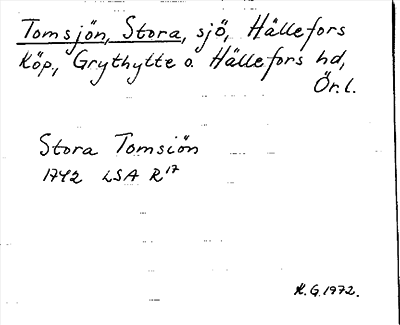 Tomsjön, Stora, sjö, Hällefors
Köp., Grythytte o. Hällefors hd,
Ör. l.
Stora Tomsiön
1742 LSA R17
K. G. 1972.